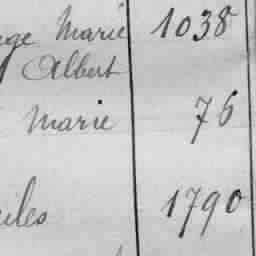 Marie 1038
Albert
Marie 76
1790